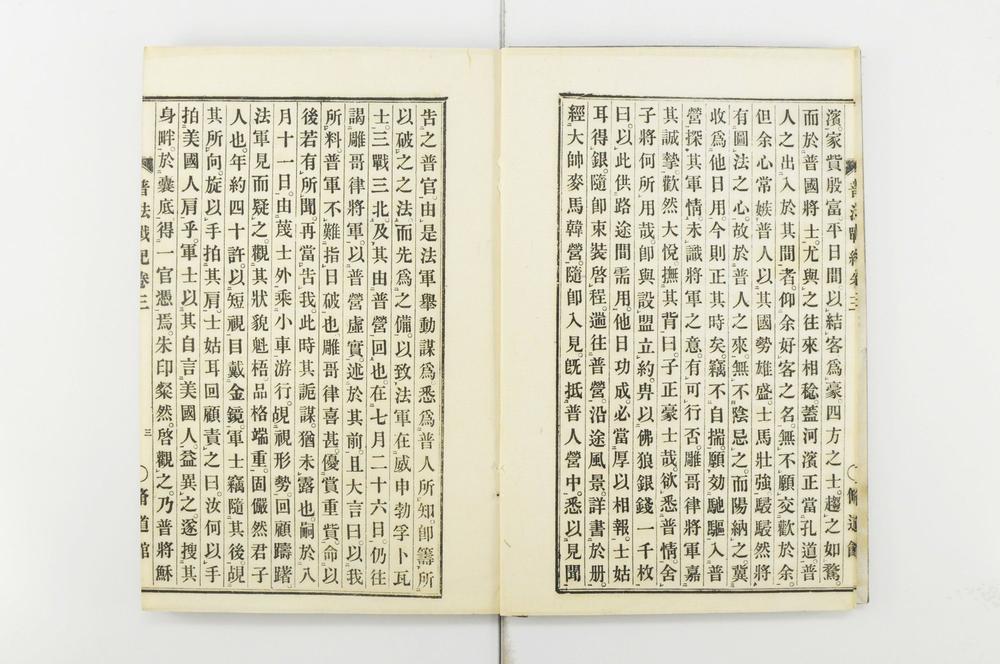 濱家貲殷富平日間以結客爲豪四方之士趨之如鶩
而於普國將士尤與之往來相稔蓋河濱正當孔道普
人之出入於其間者仰余好客之名無不願交歡於余
但余心常嫉普人以其國勢雄盛士馬壯強駸駸然將
有圖法之心故於普人之來無不陰忌之而陽納之冀
收爲他日用今則正其時矣竊不自揣願効馳驅入普
營探其軍情未識將軍之意有可行否雕哥律將軍嘉
其誠摯歡然大悅撫其背曰子正豪士哉欲悉普情舍
子將何所用哉卽與設盟立約畀以佛狼銀錢一千枚
曰以此供路途間需用他日功成必當厚以相報士姑
耳得銀隨卽束裝啓程遄往普營沿途風景詳書於册
經大帥麥馬韓營隨卽入見旣抵普人營中悉以見聞
告之普官由是法軍舉動謀爲悉爲普人所知卽籌所
以破之之法而先爲之備以致法軍在威申勃孚卜瓦
士三戰三北及其由普營回也在七月二十六日仍往
謁雕哥律將軍以普營虛實述於其前且大言曰以我
所料普軍不難指日破也雕哥律喜甚優賞重貲命以
後若有所聞再當告我此時其詭謀猶未露也嗣於八
月十一日由蔑士外乘小車游行覘視形勢回顧躊躇
法軍見而疑之觀其狀貌魁梧品格端重固儼然君子
人也年約四十許以短視目戴金鏡軍士竊隨其後覘
其所向旋以手拍其肩士姑耳回顧責之曰汝何以手
拍美國人肩乎軍士以其自言美國人益異之遂搜其
身畔於囊底得一官憑焉朱印粲然啓觀之乃普將穌
普法戰紀卷三
三
脩道館